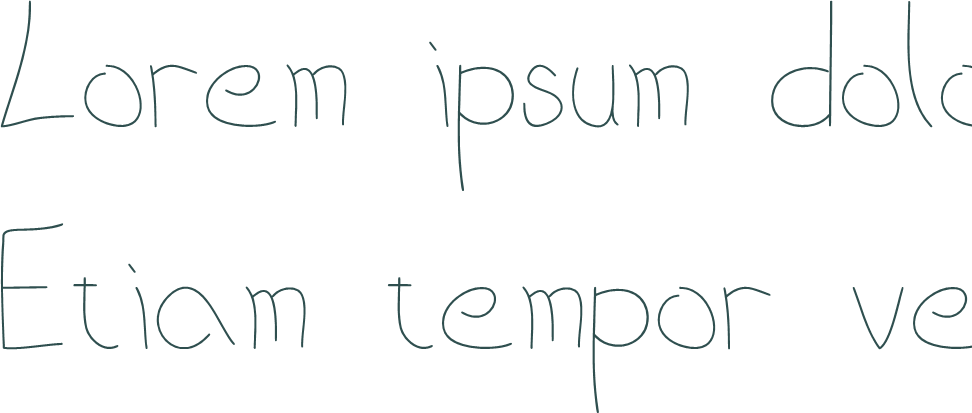 Lorem ipsum dolo
Etiam tempor ve